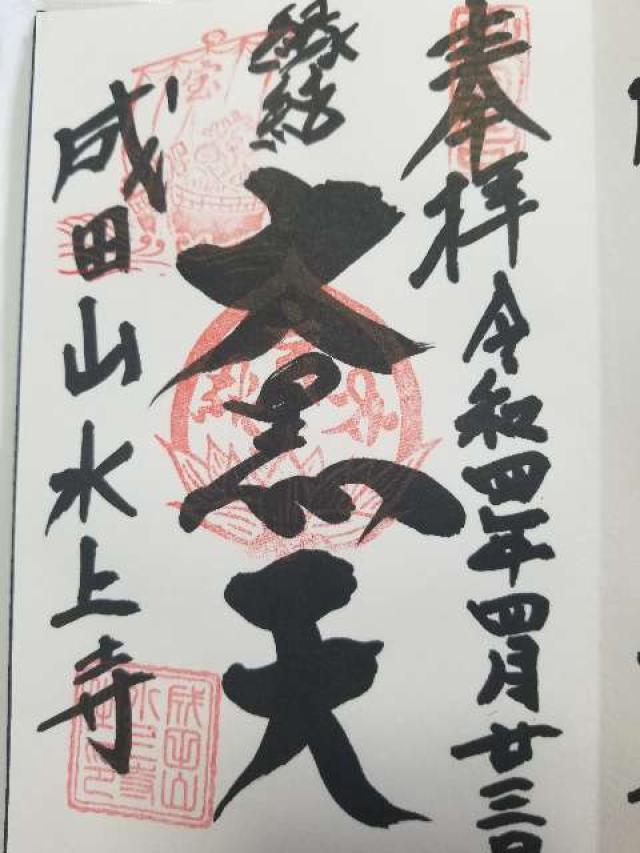 奉拝 令和四年四月廿三日
縁結
大黒天
成田山水上寺
宝
成田山水上寺